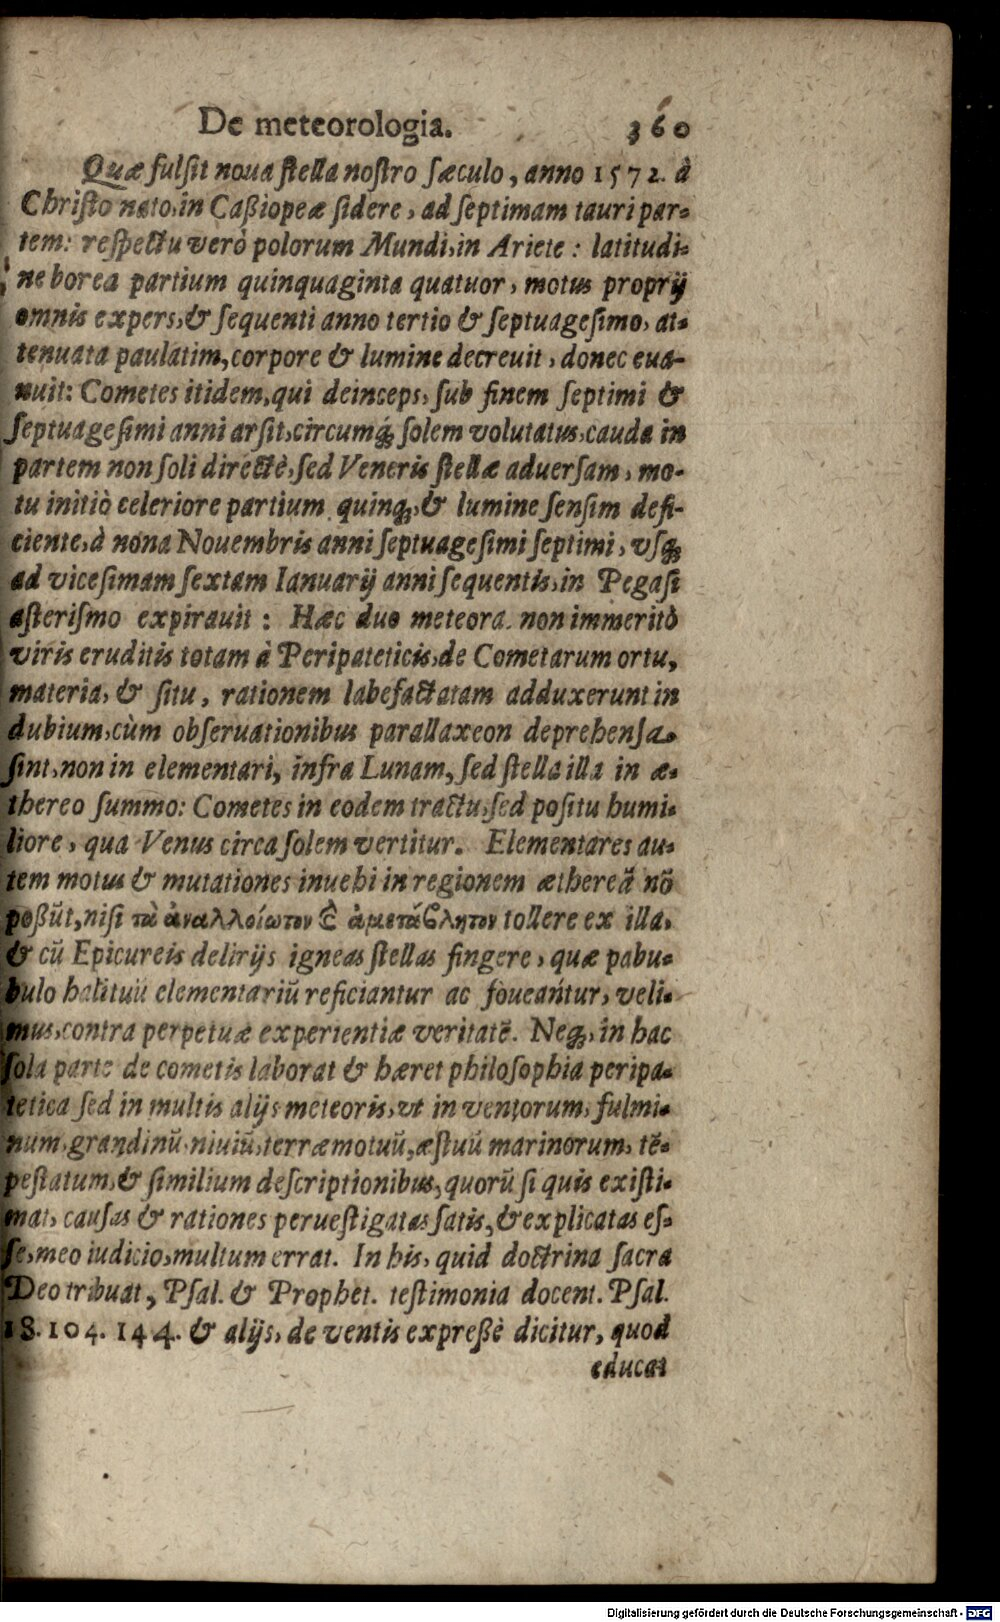 De meteorologia. 360
Quæ fulſit noua ſtella noſtro ſæculo, anno 1572. à
Chriſto nato, in Caßiopeæ ſidere, ad ſeptimam tauri par-
tem: reſpectu verò polorum Mundi, in Ariete: latitudi-
ne borea partium quinquaginta quatuor, motus proprij
omnis expers, & ſequenti anno tertio & ſeptuageſimo, at-
tenuata paulatim, corpore & lumine decreuit, donec eua-
nuit: Cometes itidem, qui deinceps, ſub finem ſeptimi &
ſeptuageſimi anni arſit, circumq́; ſolem volutatus, cauda in
partem non ſoli directè, ſed Veneris ſtellæ aduerſam, mo-
tu initiò celeriore partium quinq;, & lumine ſenſim defi-
ciente, à nona Nouembris anni ſeptuageſimi ſeptimi, vſq;
ad viceſimam ſextam Ianuarij anni ſequentis, in Pegaſi
aſteriſmo expirauit: Hæc duo meteora. non immeritò
viris eruditis totam à Peripateticis, de Cometarum ortu,
materia, & ſitu, rationem labefactatam adduxerunt in
dubium, cùm obſeruationibus parallaxeon deprehenſa
ſint, non in elementari, infra Lunam, ſed ſtella illa in æ-
thereo ſummo: Cometes in eodem tractu, ſed poſitu humi-
liore, qua Venus circa ſolem vertitur. Elementares au-
tem motus & mutationes inuehi in regionem æthereã nõ
poßũt, niſi τὰ ἀναλλοίωτον ϗ̀ ἀμετάϐλητον tollere ex illa,
& cũ Epicureis delirijs igneas ſtellas fingere, quæ pabu-
bulo halituũ elementariũ reficiantur ac foueantur, veli-
mus, contra perpetuæ experientiæ veritatẽ. Neq;, in hac
ſola parte de cometis laborat & hæret philoſophia peripa-
tetica ſed in multis alijs meteoris, vt in ventorum, fulmi-
num, grandinũ, niuiũ, terræmotuũ, æſtuũ marinorum, tẽ-
peſtatum, & ſimilium deſcriptionibus, quorũ ſi quis exiſti-
mat, cauſas & rationes perueſtigatas ſatis, & explicatas eſ-
ſe, meo iudicio, multum errat. In his, quid doctrina ſacra
Deo tribuat, Pſal. & Prophet. teſtimonia docent. Pſal.
18. 104. 144. & alijs, de ventis expreßè dicitur, quod
educat
Digitalisierung gefördert durch die Deutsche Forschungsgemeinschaft - DFG